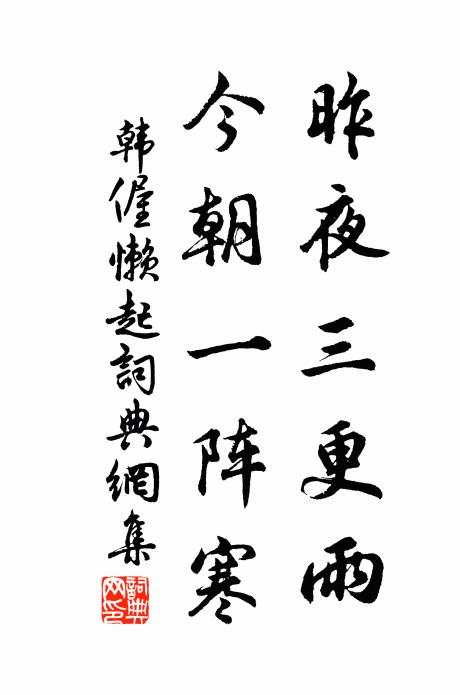 昨夜三更雨
今朝一阵寒
韩偓懒起詞典網集
詞典網印